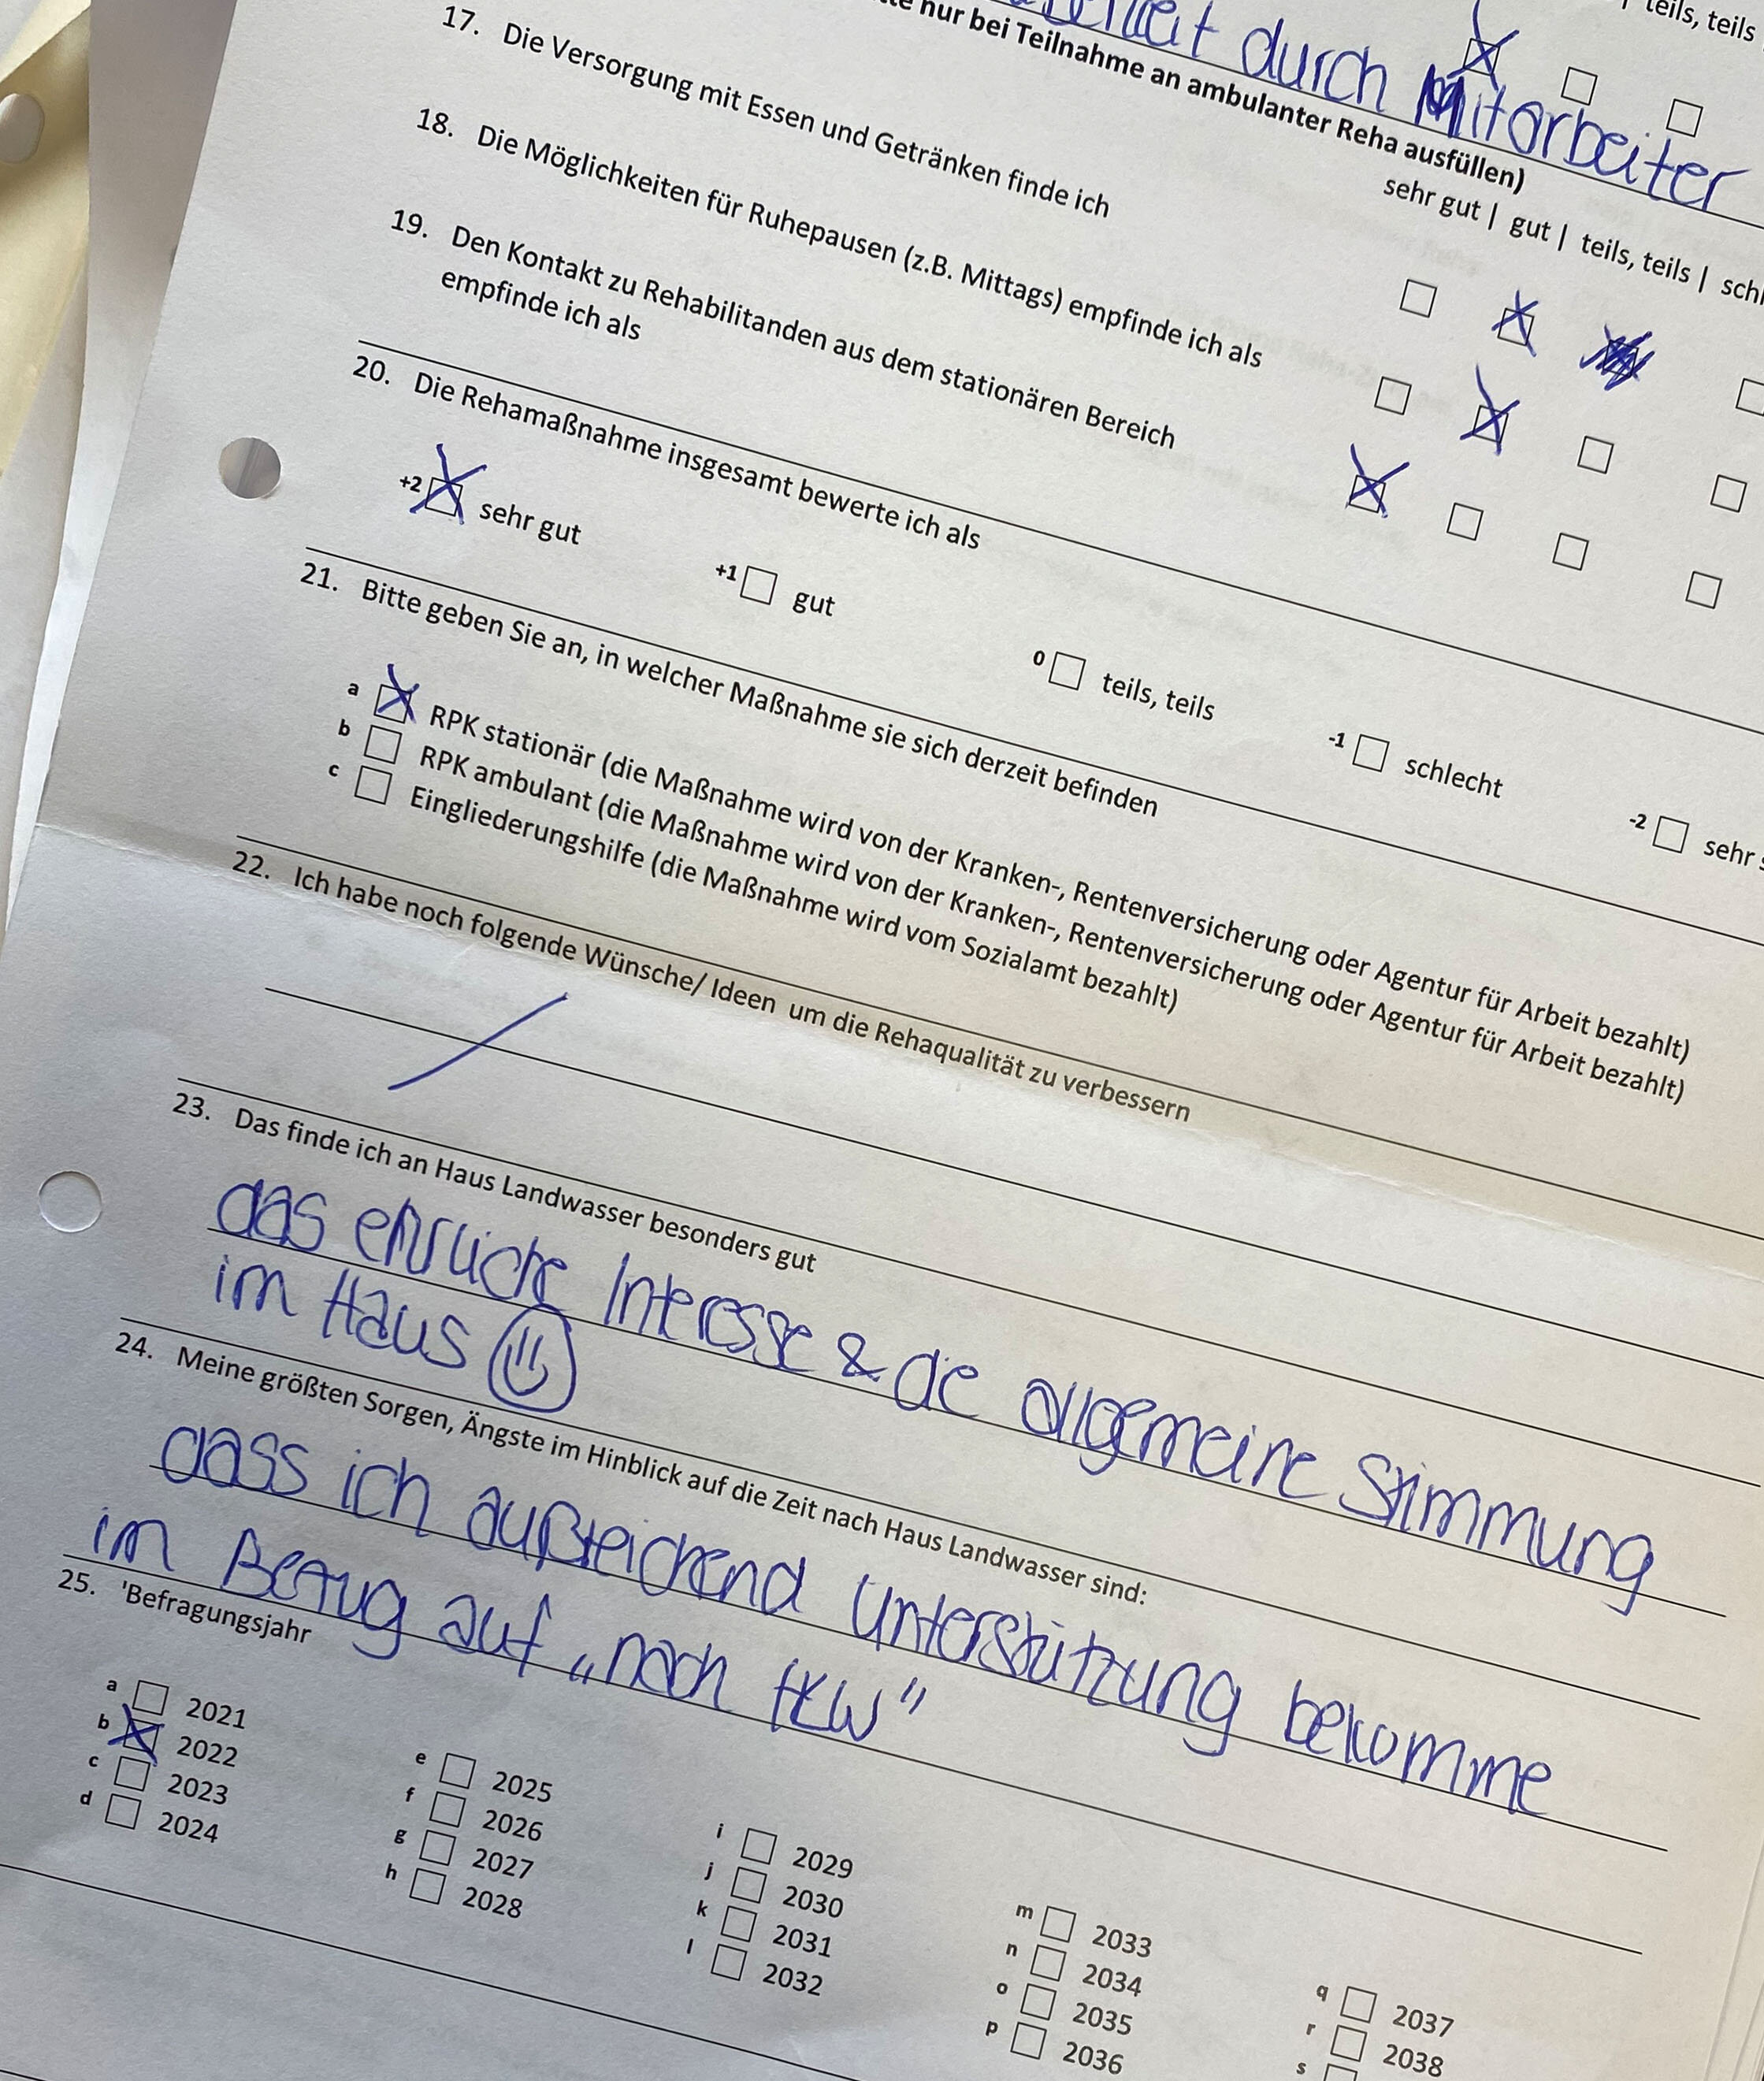 teils, teils
durch Mitarbeiter
nur bei Teilnahme an ambulanter Reha ausfüllen)
sehr gut | gut | teils, teils |
17. Die Versorgung mit Essen und Getränken finde ich
18. Die Möglichkeiten für Ruhepausen (z.B. Mittags) empfinde ich als
19. Den Kontakt zu Rehabilitanden aus dem stationären Bereich
empfinde ich als
20. Die Rehamaßnahme insgesamt bewerte ich als
+2 sehr gut +1 gut 0 teils, teils -1 schlecht -2 sehr
21. Bitte geben Sie an, in welcher Maßnahme sie sich derzeit befinden
a RPK stationär (die Maßnahme wird von der Kranken-, Rentenversicherung oder Agentur für Arbeit bezahlt)
b RPK ambulant (die Maßnahme wird von der Kranken-, Rentenversicherung oder Agentur für Arbeit bezahlt)
c Eingliederungshilfe (die Maßnahme wird vom Sozialamt bezahlt)
22. Ich habe noch folgende Wünsche/ Ideen um die Rehaqualität zu verbessern
23. Das finde ich an Haus Landwasser besonders gut
das ehrliche Interesse & die allgemeine Stimmung
im Haus
24. Meine größten Sorgen, Ängste im Hinblick auf die Zeit nach Haus Landwasser sind:
dass ich außreichend Unterstützung bekomme
im Bezug auf „nach HLW"
25. 'Befragungsjahr
a 2021
b 2022
c 2023
d 2024
e 2025
f 2026
g 2027
h 2028
i 2029
j 2030
k 2031
l 2032
m 2033
n 2034
o 2035
p 2036
q 2037
r 2038
s